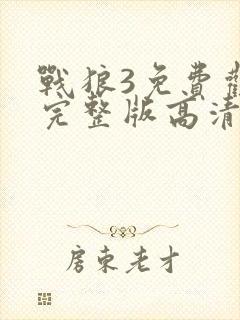 戰狼3免費觀
完整版高清
房東老才